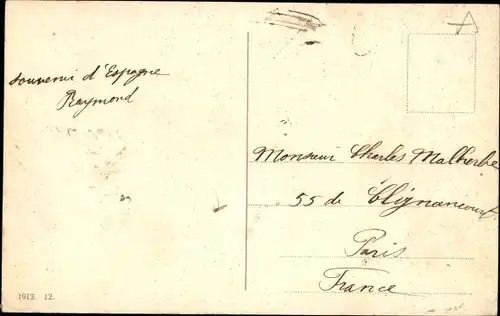 Souvenir d'Espagne
Raymond
Monsieur Charles Malherbe
55 de Clignancourt
Paris
France
1913. 12.